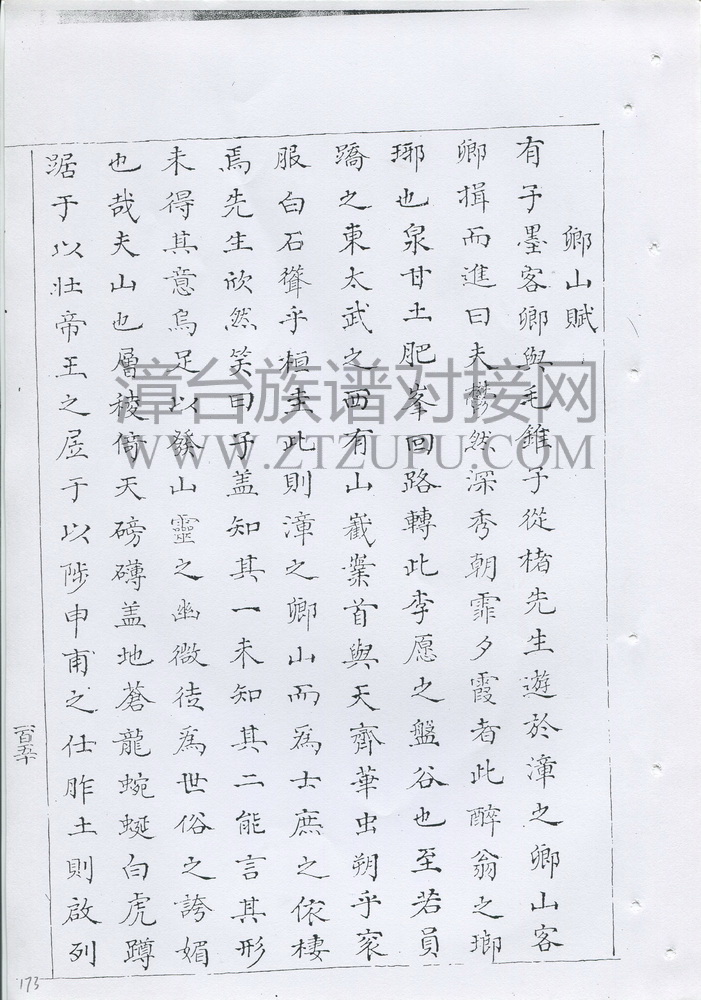 卿山賦
有子墨客卿與毛錐子從楮先生遊於漳之卿山客
卿揖而進曰夫鬱然深秀朝霏夕霞者此醉翁之瑯
琊也泉甘土肥峯回路轉此李愿之盤谷也至若員
蹻之東太武之西有山嶻嶪首與天齊華虫朔乎衮
服白石聳乎桓圭此則漳之卿山而為士庶之依棲
焉先生欣然笑曰子盖知其一未知其二能言其形
未得其意烏足以發山靈之幽微徒為世俗之誇媚
也哉夫山也層稜倚天磅礴盖地蒼龍蜿蜒白虎蹲
踞于以壯帝王之居于以陟申甫之仕胙土則啟列
一百五十
173
漳台族谱对接网
WWW.ZTZUPU.COM